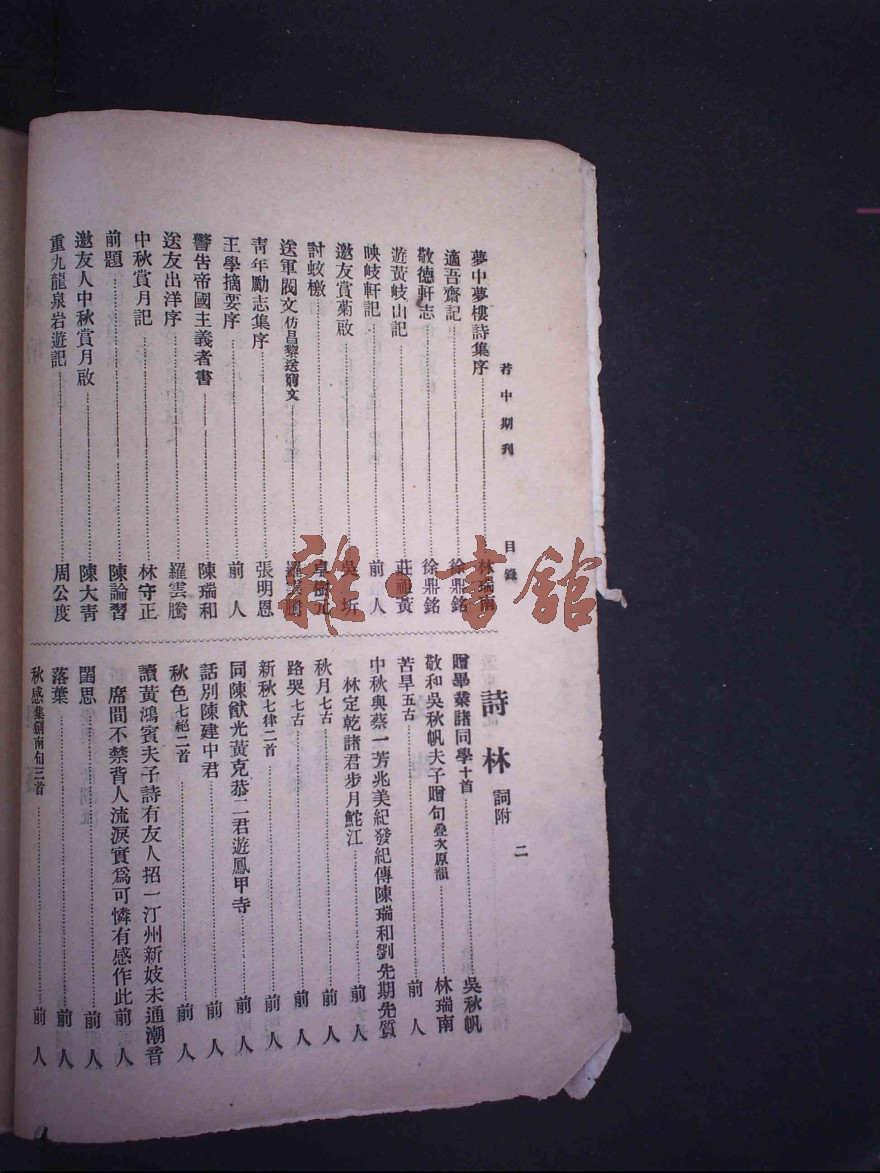 若中期刊 目錄 二
夢中夢樓詩集序 林瑞南
適吾齋記 徐鼎銘
敬德軒志 徐鼎銘
遊黃岐山記 莊祖黃
映岐軒記 前人
邀友賞菊啟 吳圻
討蚊檄 卓樹元
送軍閥文仿昌黎送窮文 羅雲騰
青年勵志集序 張明恩
王學摘要序 前人
警告帝國主義者書 陳瑞和
送友出洋序 羅雲騰
中秋賞月記 林守正
前題 陳論習
邀友人中秋賞月啟 陳大靑
重九龍泉岩遊記 周公度
詩林 詞附
贈畢業諸同學十首 吳秋帆
敬和吳秋帆夫子贈句疊次原韻 林瑞南
苦旱五古 前人
中秋與蔡一芳兆美紀發紀傳陳瑞和劉先期先質
林定乾諸君步月鮀江 前人
秋月七古 前人
路哭七古 前人
新秋七律二首 前人
同陳猷光黃克恭二君遊鳳甲寺 前人
話別陳建中君 前人
秋色七絕二首 前人
讀黃鴻賓夫子詩有友人招一汀州新妓未通潮音
席間不禁背人流淚實爲可憐有感作此 前人
閨思 前人
落葉 前人
秋感集劍南句三首 前人
雅·書館